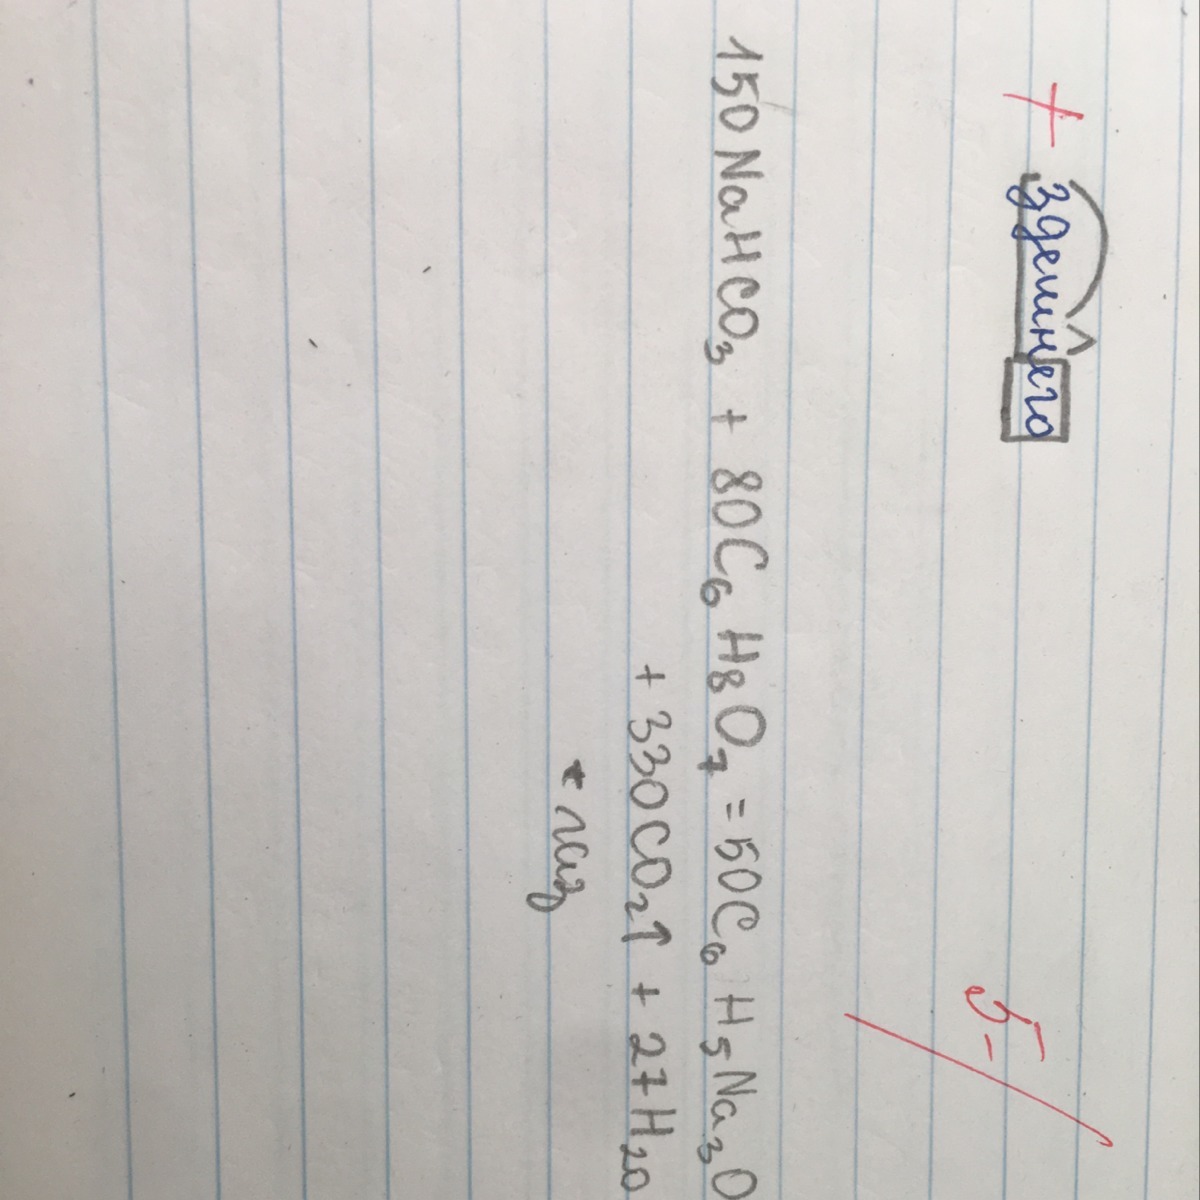 + здешнего
5-
150NaHCO₃ + 80C₆H₈O₇ = 50C₆H₅Na₃O
+ 330CO₂↑ + 27H₂O
* газ